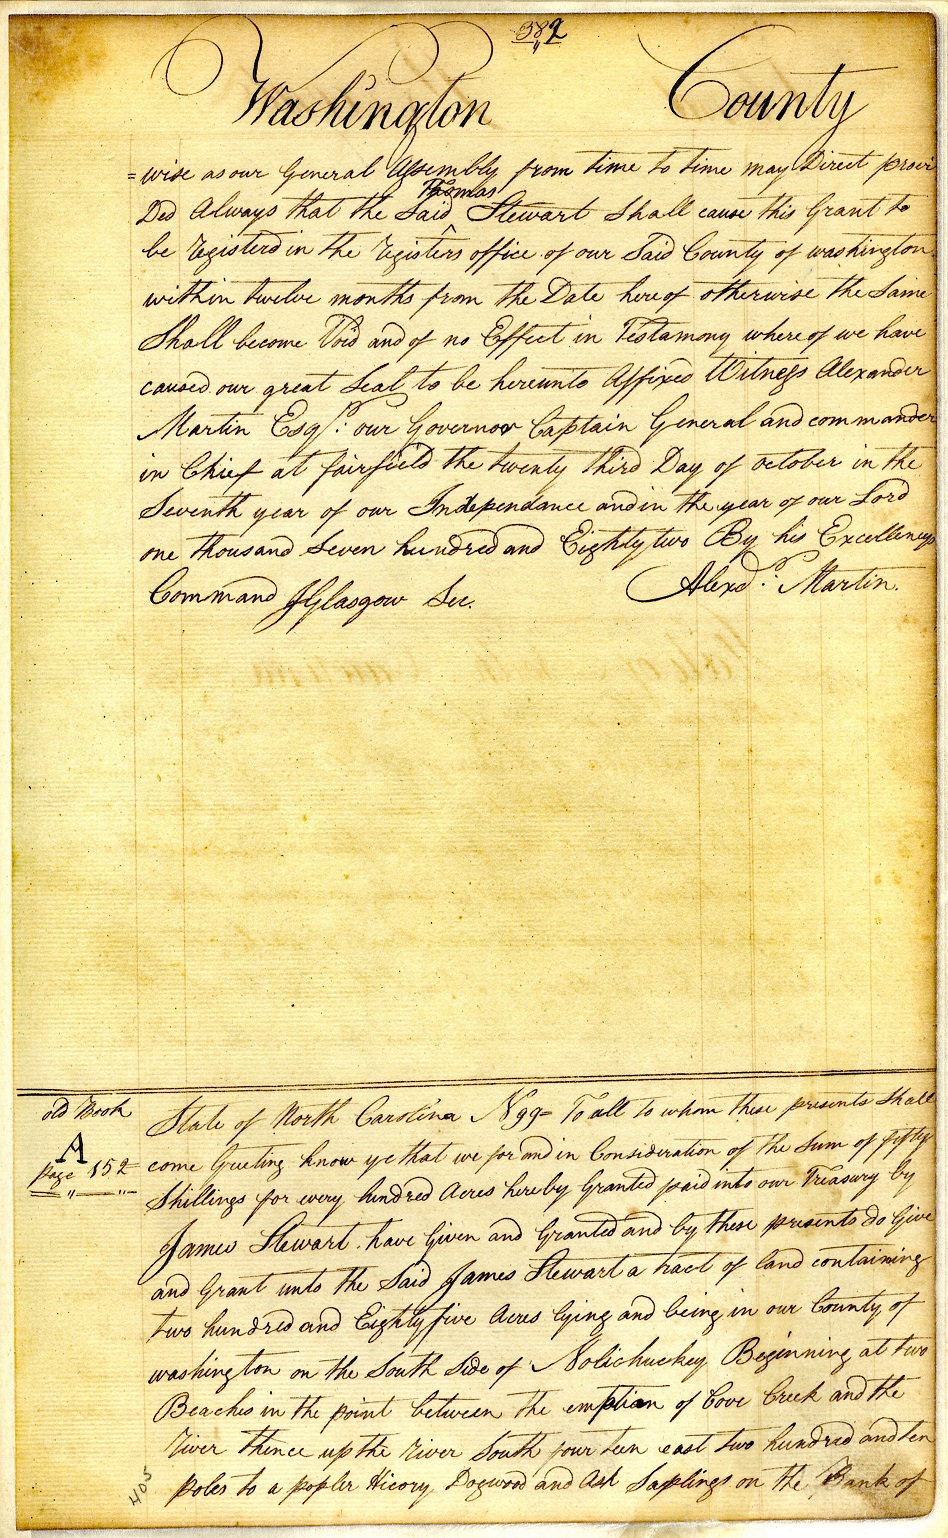 382
Washington County
=wise as our General Assembly from time to time may Direct provi
Ded Always that the Said Thomas Stewart Shall cause this Grant to
be registerd in the registers office of our Said County of washington
within twelve months from the Date hereof otherwise the Same
Shall become Void and of no Effect in Testamony where of we have
caused our great Seal to be hereunto Affixed Witness Alexander
Martin Esqr. our Governor Captain General and commander
in Chief at fairfield the twenty third Day of october in the
Seventh year of our Independance and in the year of our Lord
one thousand Seven hundred and Eighty two By his Excellencys
Command JGlasgow Sec. Alexd. Martin.
old Book
A
page 152
State of North Carolina N 99= To all to whom these presents Shall
come Greeting know ye that we for and in Consideration of the Sum of fifty
Shillings for every hundred Acres hereby Granted paid into our Treasury by
James Stewart. have Given and Granted and by these presents do Give
and Grant unto the Said James Stewart a tract of land containing
two hundred and Eighty five Acres lying and being in our County of
washington on the South Side of Nolichuckey Beginning at two
Beaches in the point between the emptian of Cove Creek and the
river thence up the river South four teen east two hundred and ten
poles to a popler Hicory Dogwood and Ash Saplings on the Bank of
405